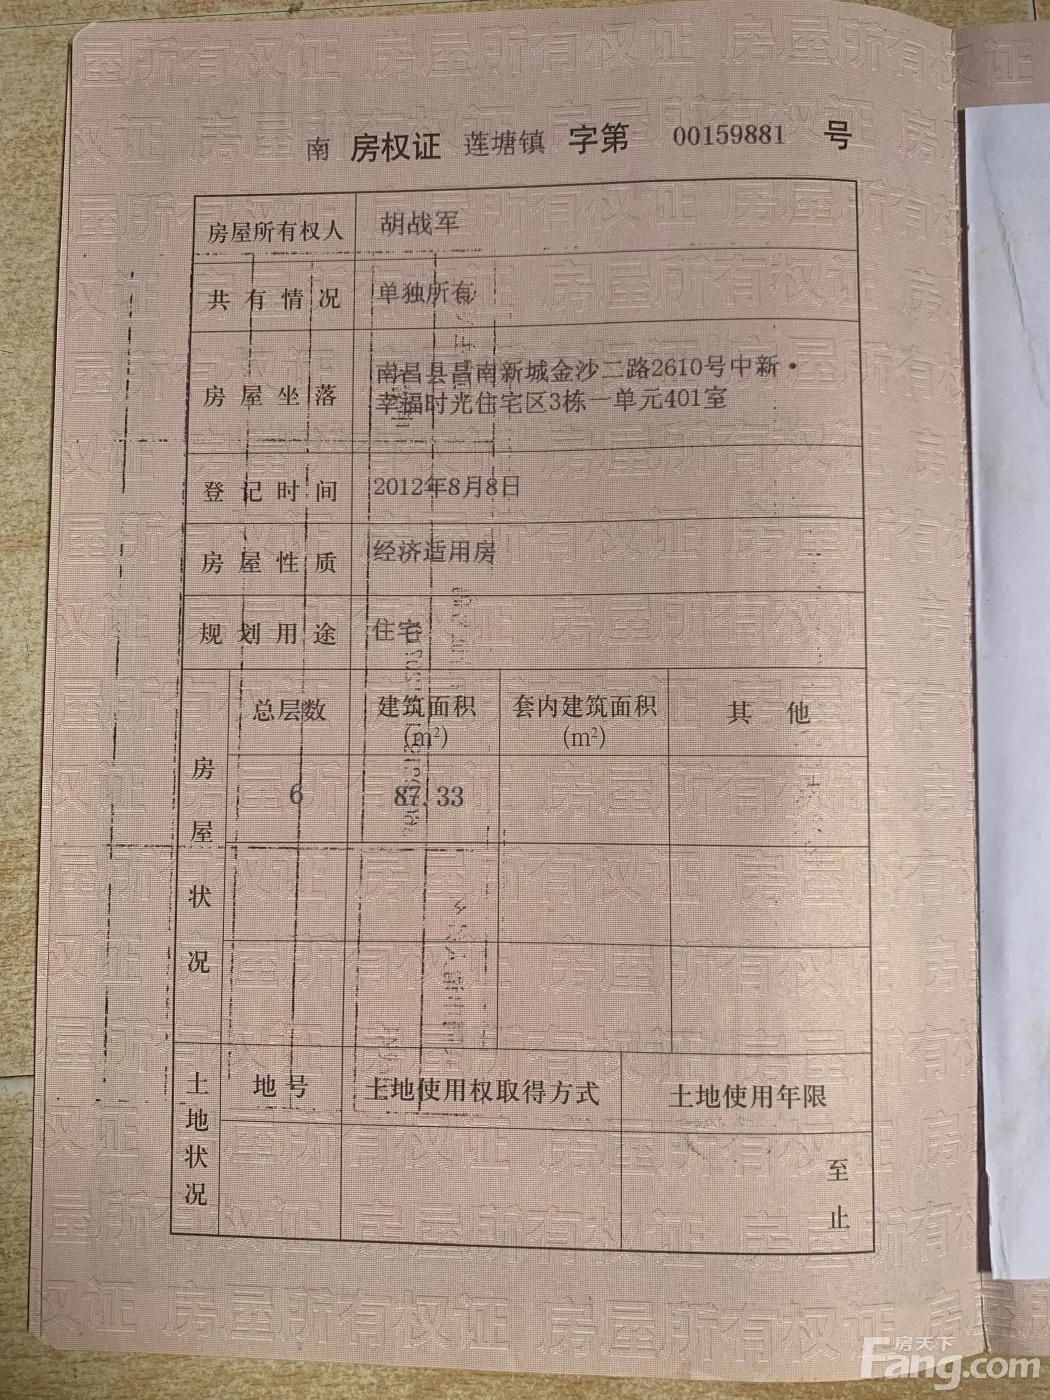 南 房权证 莲塘镇 字第 00159881 号
房屋所有权人 胡战军
共有情况 单独所有
房屋坐落 南昌县昌南新城金沙二路2610号中新·
幸福时光住宅区3栋一单元401室
登记时间 2012年8月8日
房屋性质 经济适用房
规划用途 住宅
房屋状况
总层数 建筑面积 套内建筑面积 其他
(m²) (m²)
6 87.33
土地状况
地号 土地使用权取得方式 土地使用年限
至
止
房天下
Fang.com